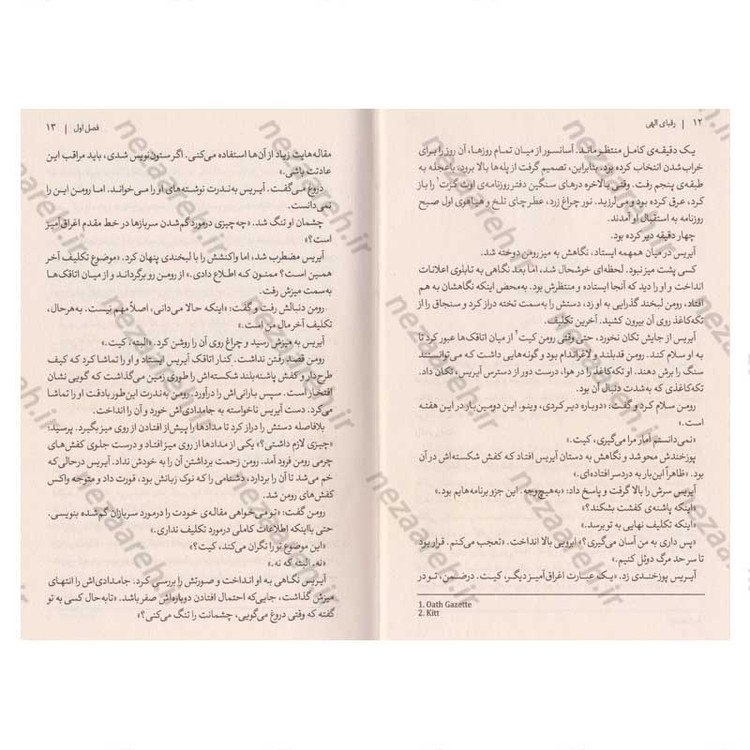 ۱۲ | رقبای الهی
یک دقیقه‌ی کامل منتظر ماند. آسانسور از میان تمام روزها، آن روز را برای
خراب شدن انتخاب کرده بود، بنابراین، تصمیم گرفت از پله‌ها بالا برود، باعجله به
طبقه‌ی پنجم رفت. وقتی بالاخره درهای سنگین دفتر روزنامه‌ی اوث گزت۱ را باز
کرد، عرق کرده بود و می‌لرزید. نور چراغ زرد، عطر چای تلخ و هیاهوی اول صبح
روزنامه به استقبال او آمدند.
چهار دقیقه دیر کرده بود.
آیریس در میان همهمه ایستاد، نگاهش به میز رومن دوخته شد.
کسی پشت میز نبود. لحظه‌ای خوشحال شد، اما بعد نگاهی به تابلوی اعلانات
انداخت و او را دید که آنجا ایستاده و منتظرش بود. به‌محض اینکه نگاهشان به هم
افتاد، رومن لبخند گذرایی به او زد، دستش را به‌سمت تخته دراز کرد و سنجاق را از
تکه‌کاغذ روی آن بیرون کشید. آخرین تکلیف.
آیریس از جایش تکان نخورد، حتی وقتی رومن کیت۲ از میان اتاقک‌ها عبور کرد تا
به او سلام کند. رومن قدبلند و لاغراندام بود و گونه‌هایی داشت که می‌توانستند
سنگ را برش دهند. او تکه‌کاغذ را در هوا، درست دور از دسترس آیریس، تکان داد.
تکه‌کاغذی که به‌شدت دنبال آن بود.
رومن سلام کرد و گفت: «دوباره دیر کردی، وینو. این دومین بار در این هفته
است.»
«نمی‌دانستم آمار مرا می‌گیری، کیت.»
پوزخندش محو شد و نگاهش به دستان آیریس افتاد که کفش شکسته‌اش در آن
بود. «ظاهراً این‌بار به دردسر افتاده‌ای.»
آیریس سرش را بالا گرفت و پاسخ داد: «به‌هیچ‌وجه. این جزو برنامه‌هایم بود.»
«اینکه پاشنه‌ی کفشت بشکند؟»
«اینکه تکلیف نهایی به تو برسد.»
«پس داری به من آسان می‌گیری؟» ابرویی بالا انداخت. «تعجب می‌کنم. قرار بود
تا سر حد مرگ دوئل کنیم.»
آیریس پوزخندی زد. «یک عبارت اغراق‌آمیز دیگر، کیت. درضمن، تو در
1. Oath Gazette
2. Kitt
فصل اول | ۱۳
مقاله‌هایت زیاد از آن‌ها استفاده می‌کنی. اگر ستون‌نویس شدی، باید مراقب این
عادتت باشی.»
دروغ می‌گفت. آیریس به‌ندرت نوشته‌های او را می‌خواند. اما رومن این را
نمی‌دانست.
چشمان او تنگ شد. «چه‌چیزی درمورد گم‌شدن سربازها در خط مقدم اغراق‌آمیز
است؟»
آیریس مضطرب شد، اما واکنشش را با لبخندی پنهان کرد. «موضوع تکلیف آخر
همین است؟ ممنون که اطلاع دادی.» از رومن رو برگرداند و از میان اتاقک‌ها
به‌سمت میزش رفت.
رومن دنبالش رفت و گفت: «اینکه حالا می‌دانی، اصلاً مهم نیست. به‌هرحال،
تکلیف آخر مال من است.»
آیریس به میزش رسید و چراغ روی آن را روشن کرد. «البته، کیت.»
رومن قصد رفتن نداشت. کنار اتاقک آیریس ایستاد و او را تماشا کرد که کیف
طرح‌دار و کفش پاشنه‌بلند شکسته‌اش را طوری زمین می‌گذاشت که گویی نشان
افتخار است. سپس بارانی‌اش را درآورد. رومن به‌ندرت این‌طور بادقت او را تماشا
می‌کرد. دست آیریس ناخواسته به جامدادی‌اش خورد و آن را انداخت.
بلافاصله دستش را دراز کرد تا مدادها را پیش از افتادن از روی میز بگیرد. پرسید:
«چیزی لازم داشتی؟» یکی از مدادها از روی میز افتاد و درست جلوی کفش‌های
چرمی رومن فرود آمد. رومن زحمت برداشتن آن را به خودش نداد. آیریس درحالی‌که
خم می‌شد تا آن را بردارد، دشنامی را که نوک زبانش بود، قورت داد و متوجه واکس
کفش‌های رومن شد.
رومن گفت: «تو می‌خواهی مقاله‌ی خودت را درمورد سربازان گم‌شده بنویسی.
حتی بااینکه اطلاعات کاملی درمورد تکلیف نداری.»
«این موضوع تو را نگران می‌کند، کیت؟»
«نه. البته که نه.»
آیریس نگاهی به او انداخت و صورتش را بررسی کرد. جامدادی‌اش را انتهای
میزش گذاشت، جایی‌که احتمال افتادن دوباره‌اش صفر باشد. «تابه‌حال کسی به تو
گفته که وقتی دروغ می‌گویی، چشمانت را تنگ می‌کنی؟»
nezaareh.ir